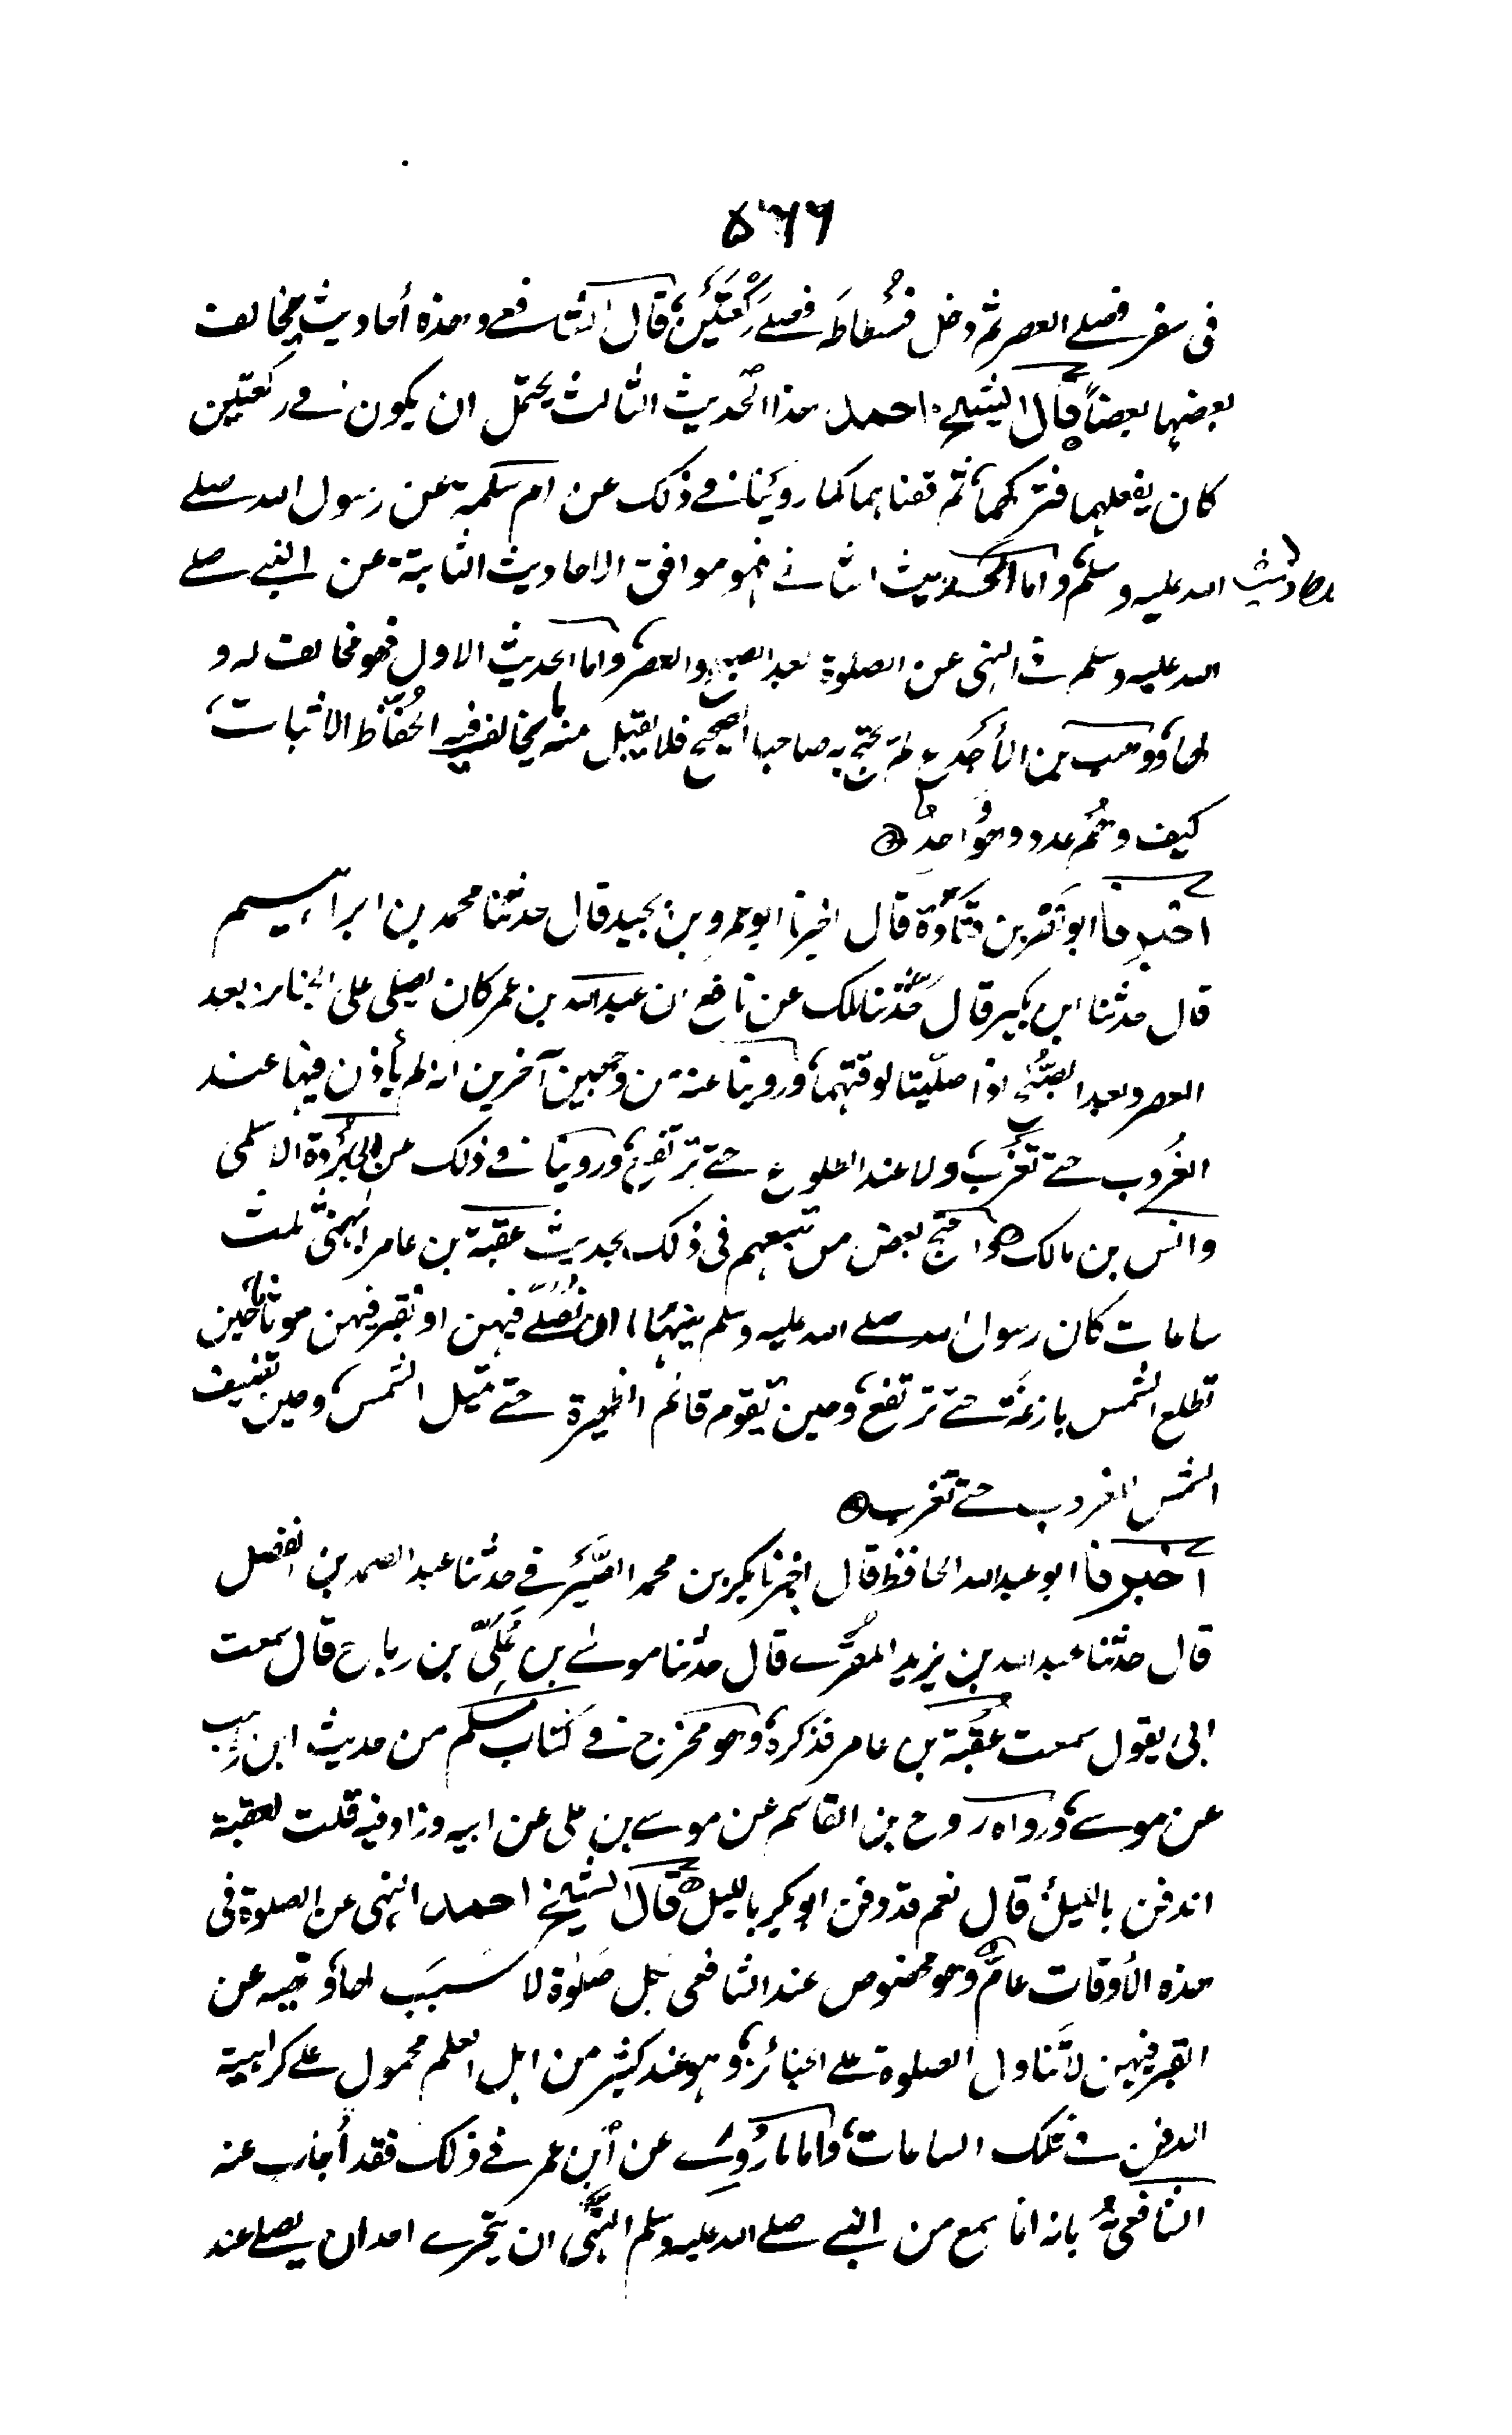 ٥٦٦
فى سفر فصلے العصر ثم دخل فُسْطاطَه فصلے رَكْعَتَيْن، قال الشافعے وهذه أحاديث يخالف
بعضها بعضاً قال الشيخ احمد هذا الحديث الثالث يحتمل ان يكون فے ركعتين
كان يفعلهما فتركهما، ثم قضاهما كما رويَنا فے ذلك عن ام سلمة عن رسول الله صلے
الله عليه وسلم، واما الحديث الثانے فهو موافق الاحاديث الثابتة عن النبے صلے
الله عليه وسلم فے النهى عن الصلوة بعد الصبح والعصر، واما الحديث الاول فهو مخالف له و
لها، ووهب بن الأجدع لم يحتج به صاحبا الصحيح فلا يقبل منه ما يخالف فيه الحُفّاظ الاثبات،
كيف وهُم عدد وهو واحدٌ
اخبرنا ابو نَصْر بن قتَادَة قال اخبرنا ابو عمرو بن نجيد قال حدثنا محمد بن ابراهيم
قال حدثنا ابن بكير قال حَدّثنا مٰلك عن نافع ان عبد الله بن عمر كان يصلى على الجنائز بعد
العصر وبعد الصُّبْح اذا صلّيتا لوقتهما، وروينا عنه من وجهين آخرين انه لم يأذن فيها عند
الغُروب حتے تغرُب ولا عند الطلوع حتے ترتفع، وروينا فے ذلك عن ابى بَرْزة الاسلمى
وانس بن مالك واحتج بعض من تبعهم فى ذلك بحديث عقبة بن عامر الجهنى ثلث
ساعات كان رسول الله صلے الله عليه وسلم ينهانا ان نُصلّے فيهن او نقبر فيهن موتانا حين
تطلع الشمس بازغة حتے ترتفع، وحين يقوم قائم الظهيرة حتے تميل الشمس، وحين تضيف
الشمس للغروب حتے تغرب
اخبرنا ابو عبد الله الحافظ قال اخبرنا بكر بن محمد الصَّيْرَفے حدثنا عبد الصمد بن الفضل
قال حدثنا عبد الله بن يزيد المقرے قال حدثنا موسٰے بن عُلَىّ بن رباح قال سمعت
ابى يقول سمعت عُقبَة بن عامر فذكره، وهو مخرج فے كتاب مسلم من حديث ابن وهب
عن موسے، ورواه روح بن القاسم عن موسے بن على عن ابيه وزاد فيه قلت لعقبة
اندفن بالليل، قال نعم قد دفن ابو بكر بالليل قال الشيخ احمد النهى عن الصلوة فى
هذه الأوقات عامٌّ وهو مخصوص عند الشافعى بكل صَلوٰة لا سَبَبَ لها، ونهيه عن
القبر فيهن لا تناول الصلوة علے الجنائز، وهو عند كثير من اهل العلم محمول علے كراهية
الدفن فے تلك الساعات، واما ما رُوِے عن ابن عمر فے ذلك فقد أجاب عنه
الشافعىُّ بانه انما سمع من النبے صلے الله عليه وسلم النهى ان يتحرے احد ان يصلے عند